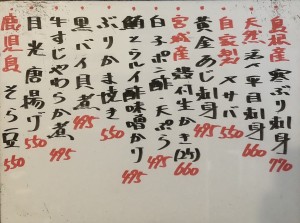 島根産 寒ぶり刺身 770
天然 平目刺身 660
自家製 〆サバ 550
黄金あじ刺身 495
宮城産 殻付生かき(2ケ) 660
白子ポン酢・天ぷら
鮪とヌルイカ酢味噌かけ 495
ぶりかま焼き 550
黒バイ貝煮 495
牛すじやわらか煮 495
目光唐揚げ 550
鹿児島 そら豆 550